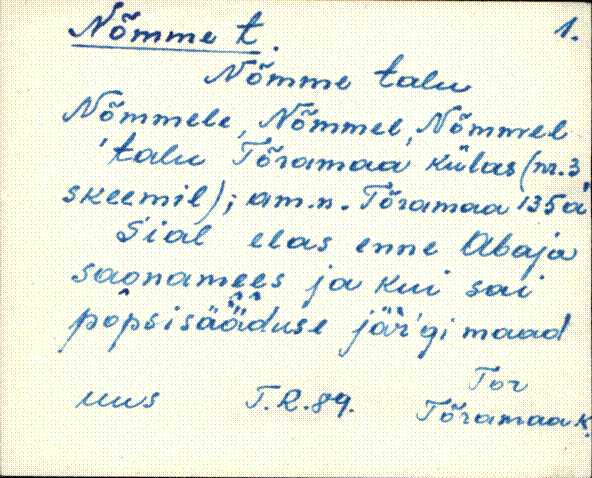 Nõmme t. 1.
Nõmme talu
Nõmmele, Nõmmel, Nõmmel
talu Tõramaa külas (nr. 3
skeemil); am.n. Tõramaa 135a
Sial elas enne Abaja
saonamees ja kui sai
popsisääduse järgi maad
uus T.R.89. Tor
Tõramaa k.